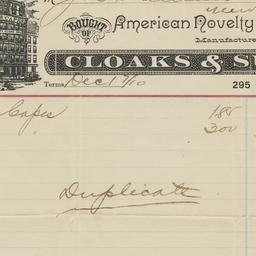 New
BOUGHT OF American Novelty
Manufacture
CLOAKS & SU
Terms Dec 1 7/10 295
Capes 185
300
Duplicate